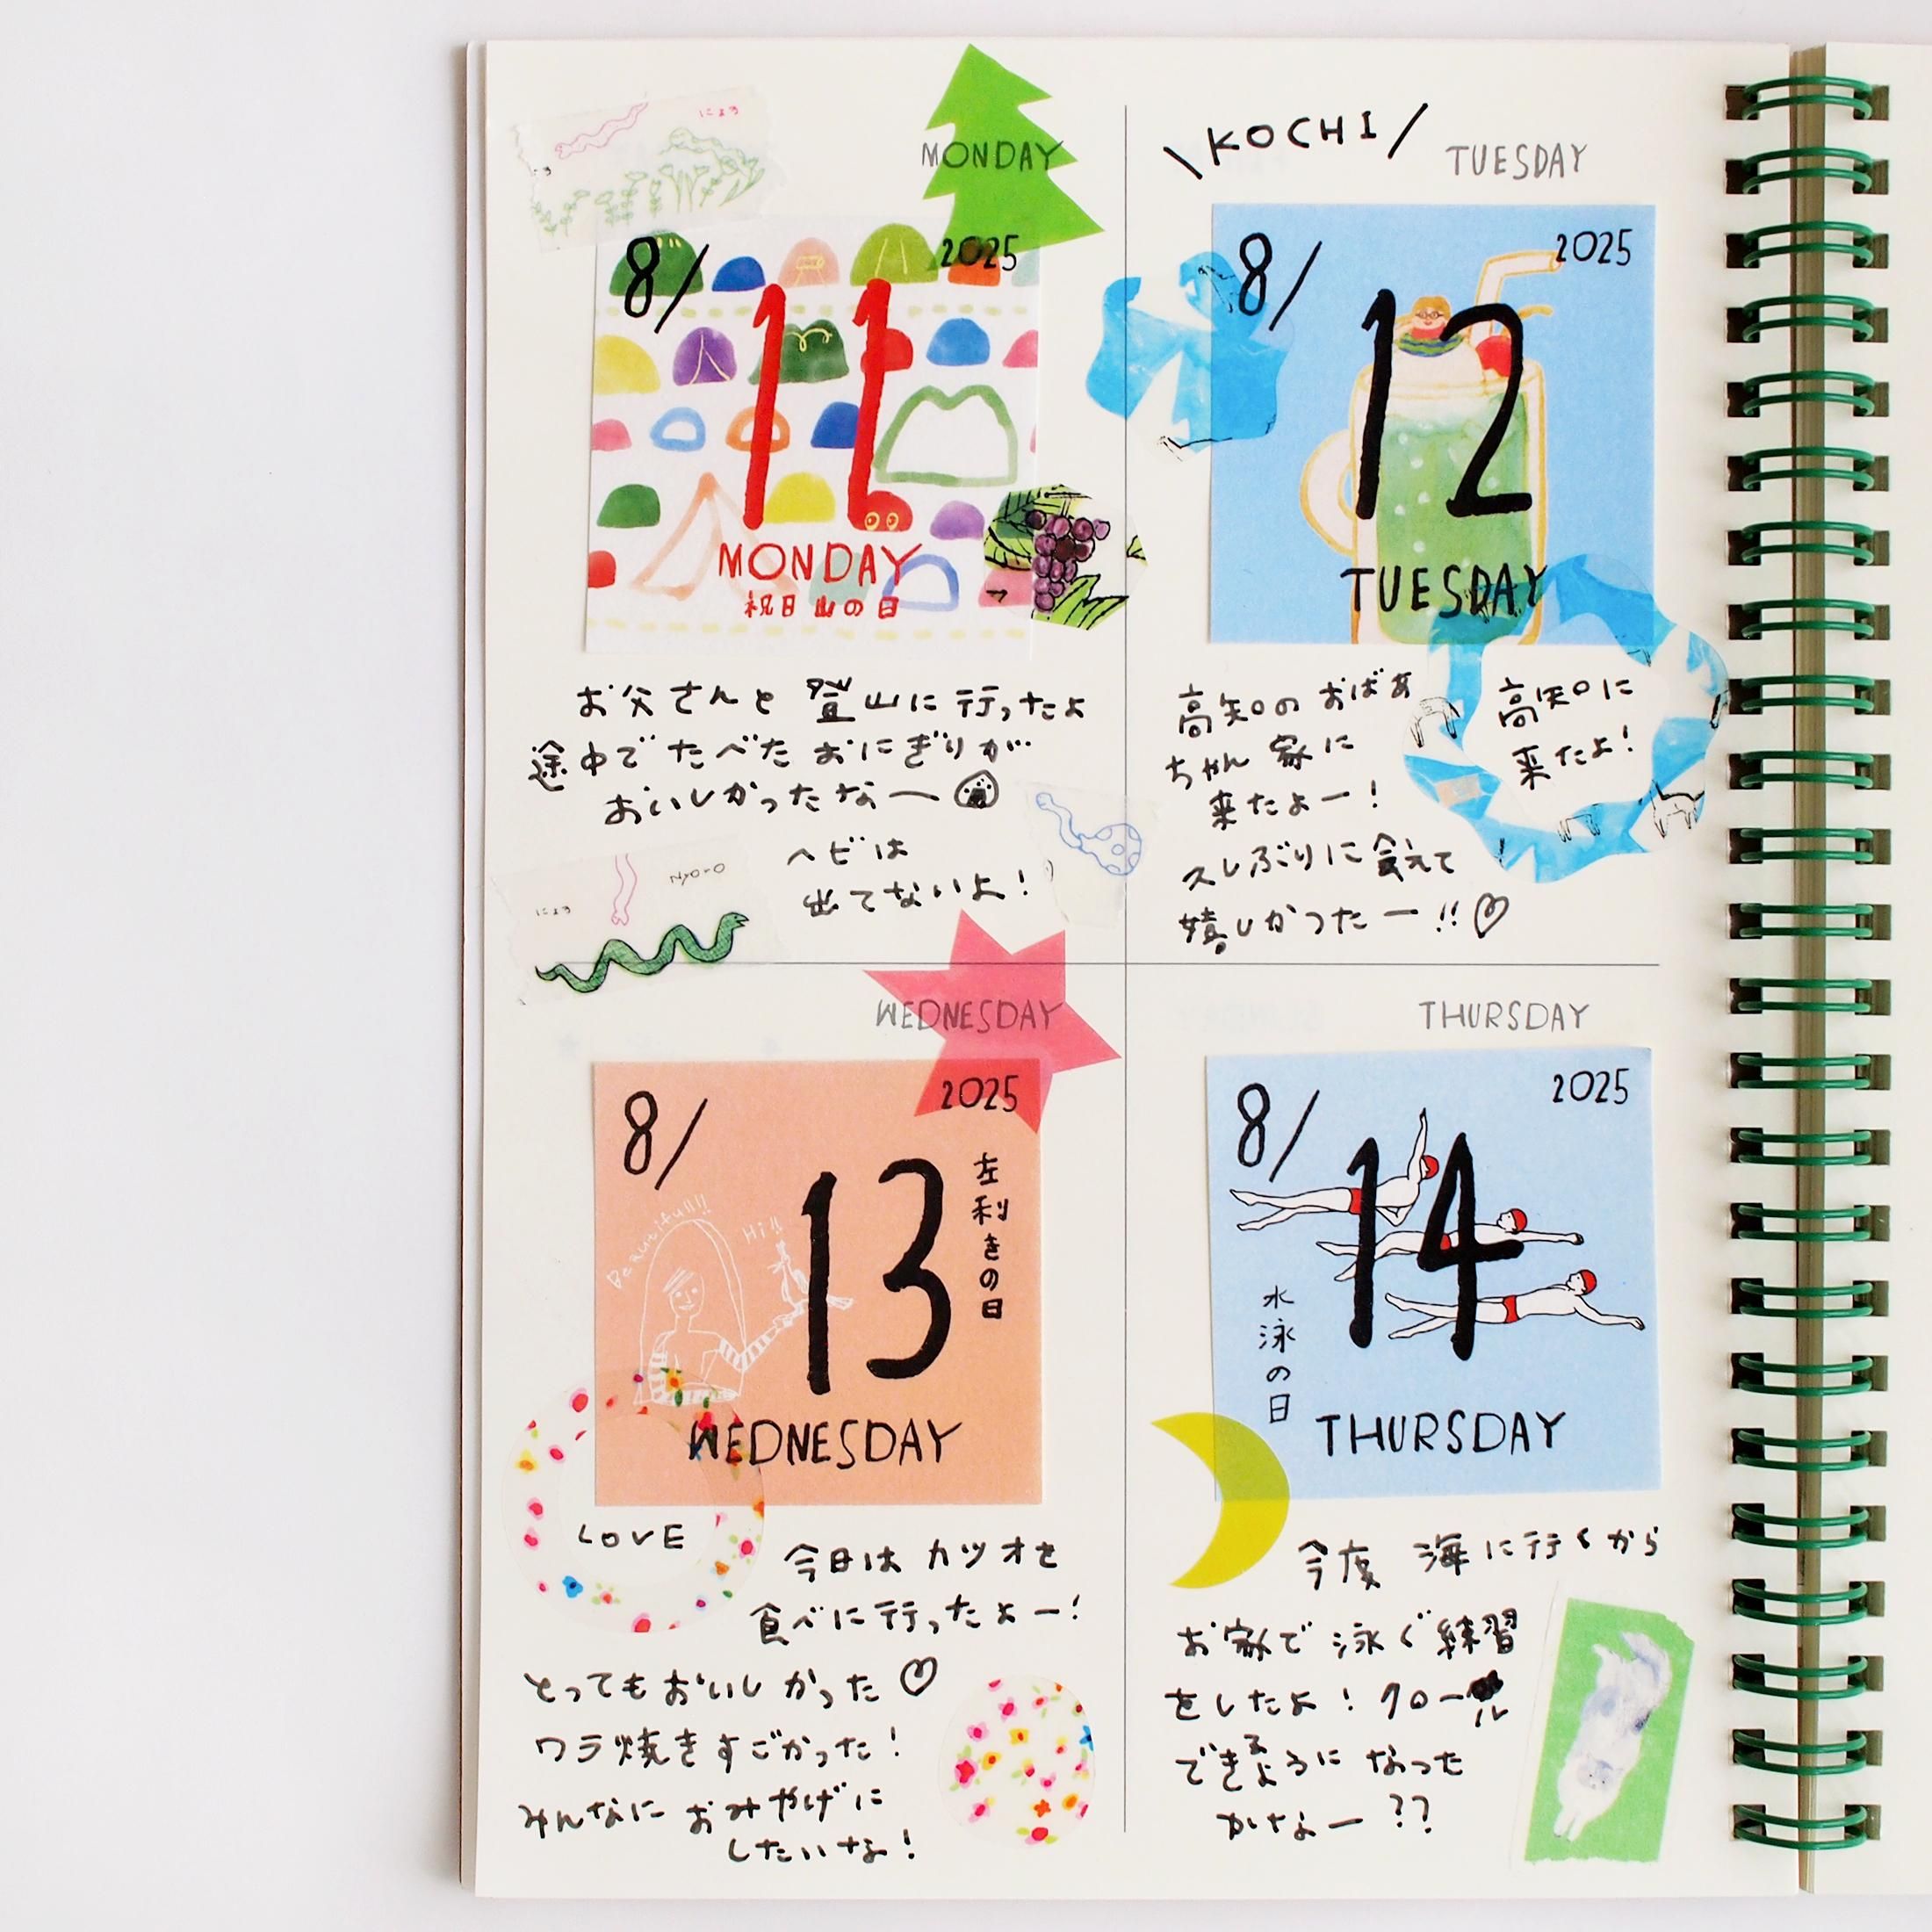 にょろ
MONDAY
8/
2025
11
MONDAY
祝日 山の日
お父さんと 登山に行ったよ
途中で たべた おにぎりが
おいしかったなー
ヘビは
出てないよ!
にょろ
\KOCHI/
TUESDAY
8/
2025
12
TUESDAY
高知の おばあ
ちゃん 家に
来たよー!
久しぶりに 会えて
嬉しかったー!!♡
高知に
来たよ!
WEDNESDAY
8/
2025
13
左利きの日
Beautiful!!!
Hi!!
WEDNESDAY
LOVE
今日は カツオを
食べに行ったよー!
とってもおいしかった♡
ワラ焼きすごかった!
みんなに おみやげに
したいな!
THURSDAY
8/
2025
14
水泳の日
THURSDAY
今度 海に行くから
お家で 泳ぐ練習
をしたよ! クロール
できるように なった
かなー??